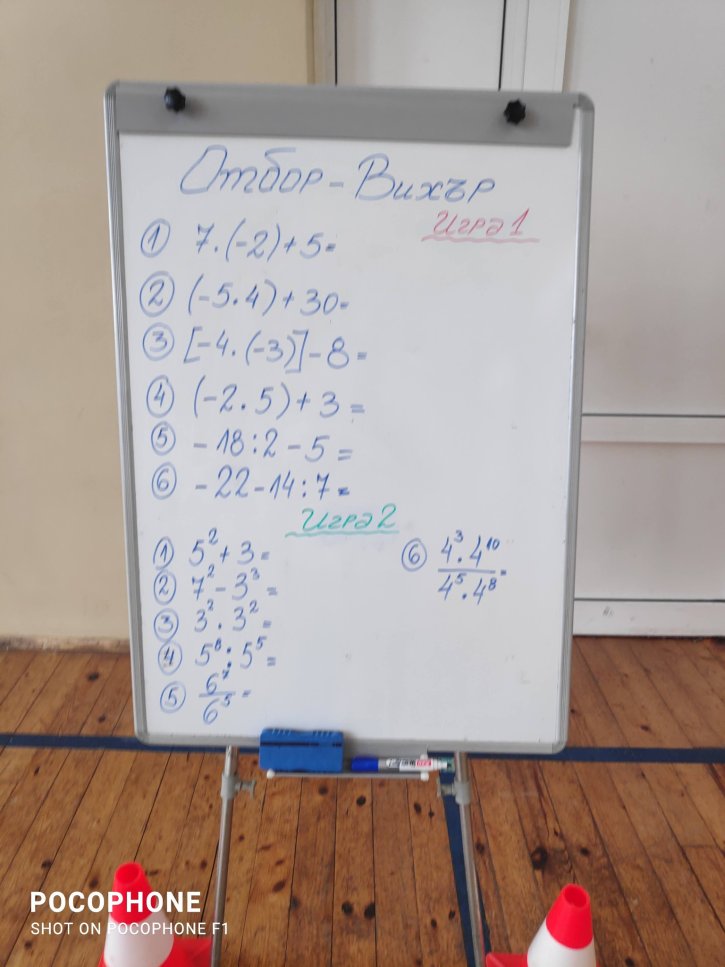 Отбор - Вихър
Игра 1
① 7.(-2)+5=
② (-5.4)+30=
③ [-4.(-3)]-8=
④ (-2.5)+3=
⑤ -18:2-5=
⑥ -22-14:7=
Игра 2
① 5²+3=
② 7²-3³=
③ 3².3²=
④ 5⁸:5⁵=
⑤ 6⁷/6⁵=
⑥ 4³.4¹⁰/4⁵.4⁸=
POCOPHONE
SHOT ON POCOPHONE F1